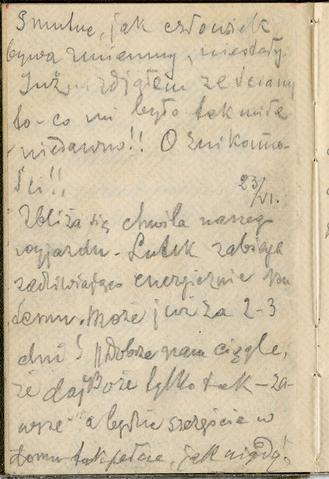 Smutne, jak człowiek
bywa zmienny, niestały.
Już zdjąłem ze ściany
to-co mi było tak miłe
niedawno!! O znikomo-
ści!!
23/VI.
Zbliża się chwila naszego
wyjazdu - Lutek zabiega
zadziwiająco energicznie ku
temu. Może już za 2-3
dni! "Dobrze nam ciągle,
że daj Boże tylko tak - za-
wsze" a będzie szczęście w
domu tak pełne, jak nigdy!